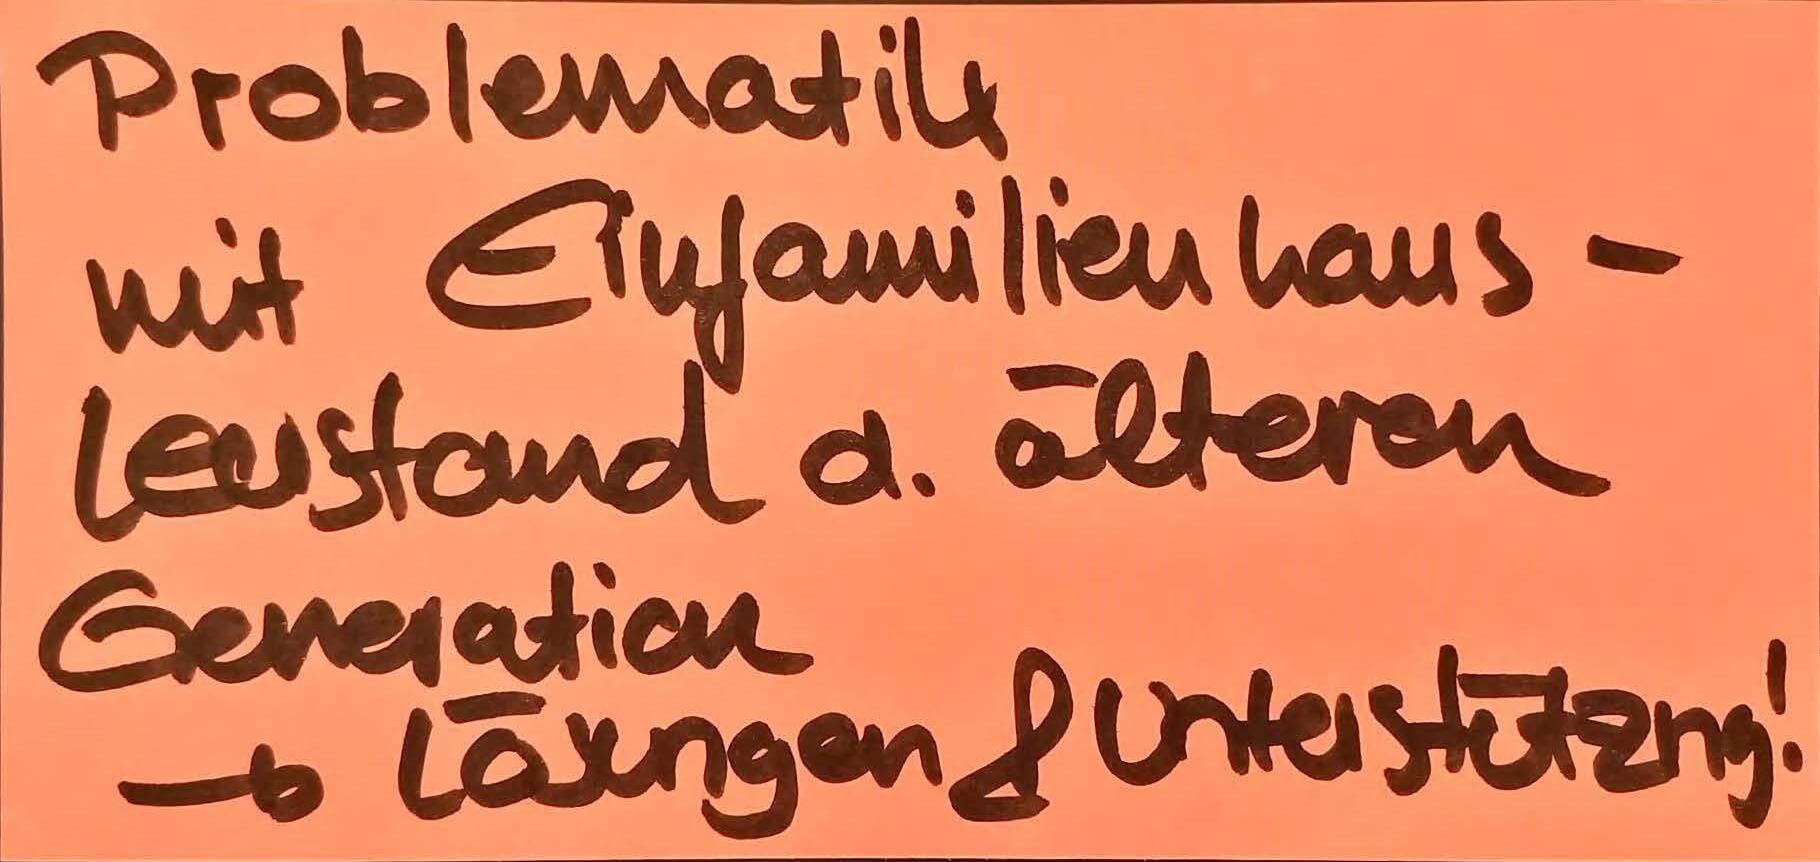 Problematik
mit Einfamilienhaus-
Leerstand d. älteren
Generation
→ Lösungen & Unterstützung!